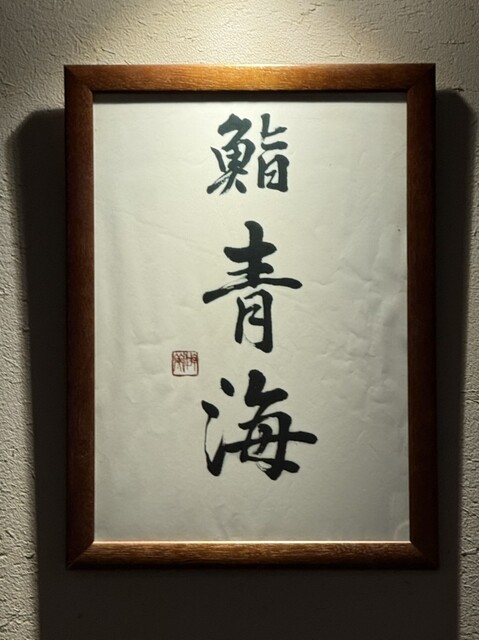 鮨
青
海